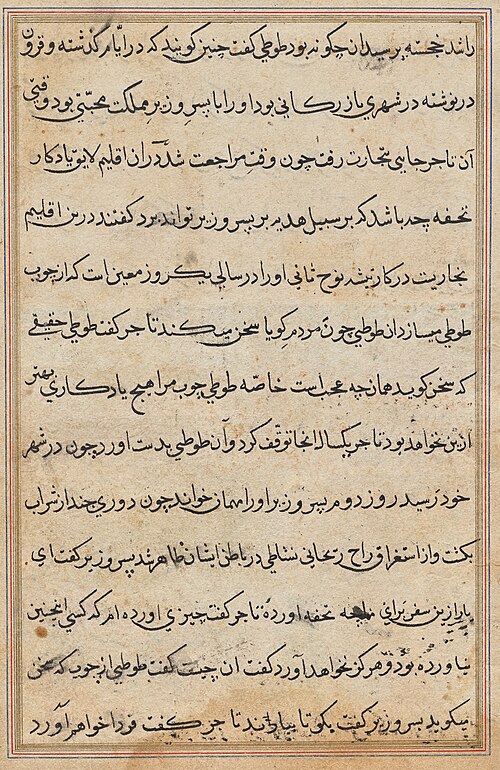 راشد خجسته پرسیدان چگونه بود طوطی گفت چنین گویند که در ایام گذشته و قرون
در نوشته در شهری بازرکانی بود او را با پسر وزیر مملکت محبتی بود وقتی
آن تاجر جایی بتجارت رفت چون وقت مراجعت شد در ان اقلیم لایق یادکار
تحفه چه باشد که بر سبیل هدیه بر پسر وزیر تواند برد گفتند درین اقلیم
نجاریت در کار تیشه نوح ثانی او را در سالی یک روز معین است که از چوب
طوطی میسازد ان طوطی چون مردم گویا سخن میکند تاجر گفت طوطی حقیقی
که سخن گوید همانچه عجب است خاصه طوطی چوب مرا هیچ یادکاری بهتر
ازین نخواهد بود تاجر یکسال انجا توقف کرد و آن طوطی بدست اورد چون در شهر
خود رسید روز دوم پسر وزیر را مهمان خواند چون دوری چند از شراب
بگشت و از استغراق راح ریحانی نشاطی در باطن ایشان ظاهر شد پسر وزیر گفت ای
یار ازین سفر برای تحفه اورده تاجر گفت چیزی اورده ام که کسی انچنین
نیاورده بود و هرگز نخواهد آورد گفت ان چیست گفت طوطی از چوب که سخن
میگوید پسر وزیر گفت بگو تا بیارند تاجر گفت فردا خواهم آورد